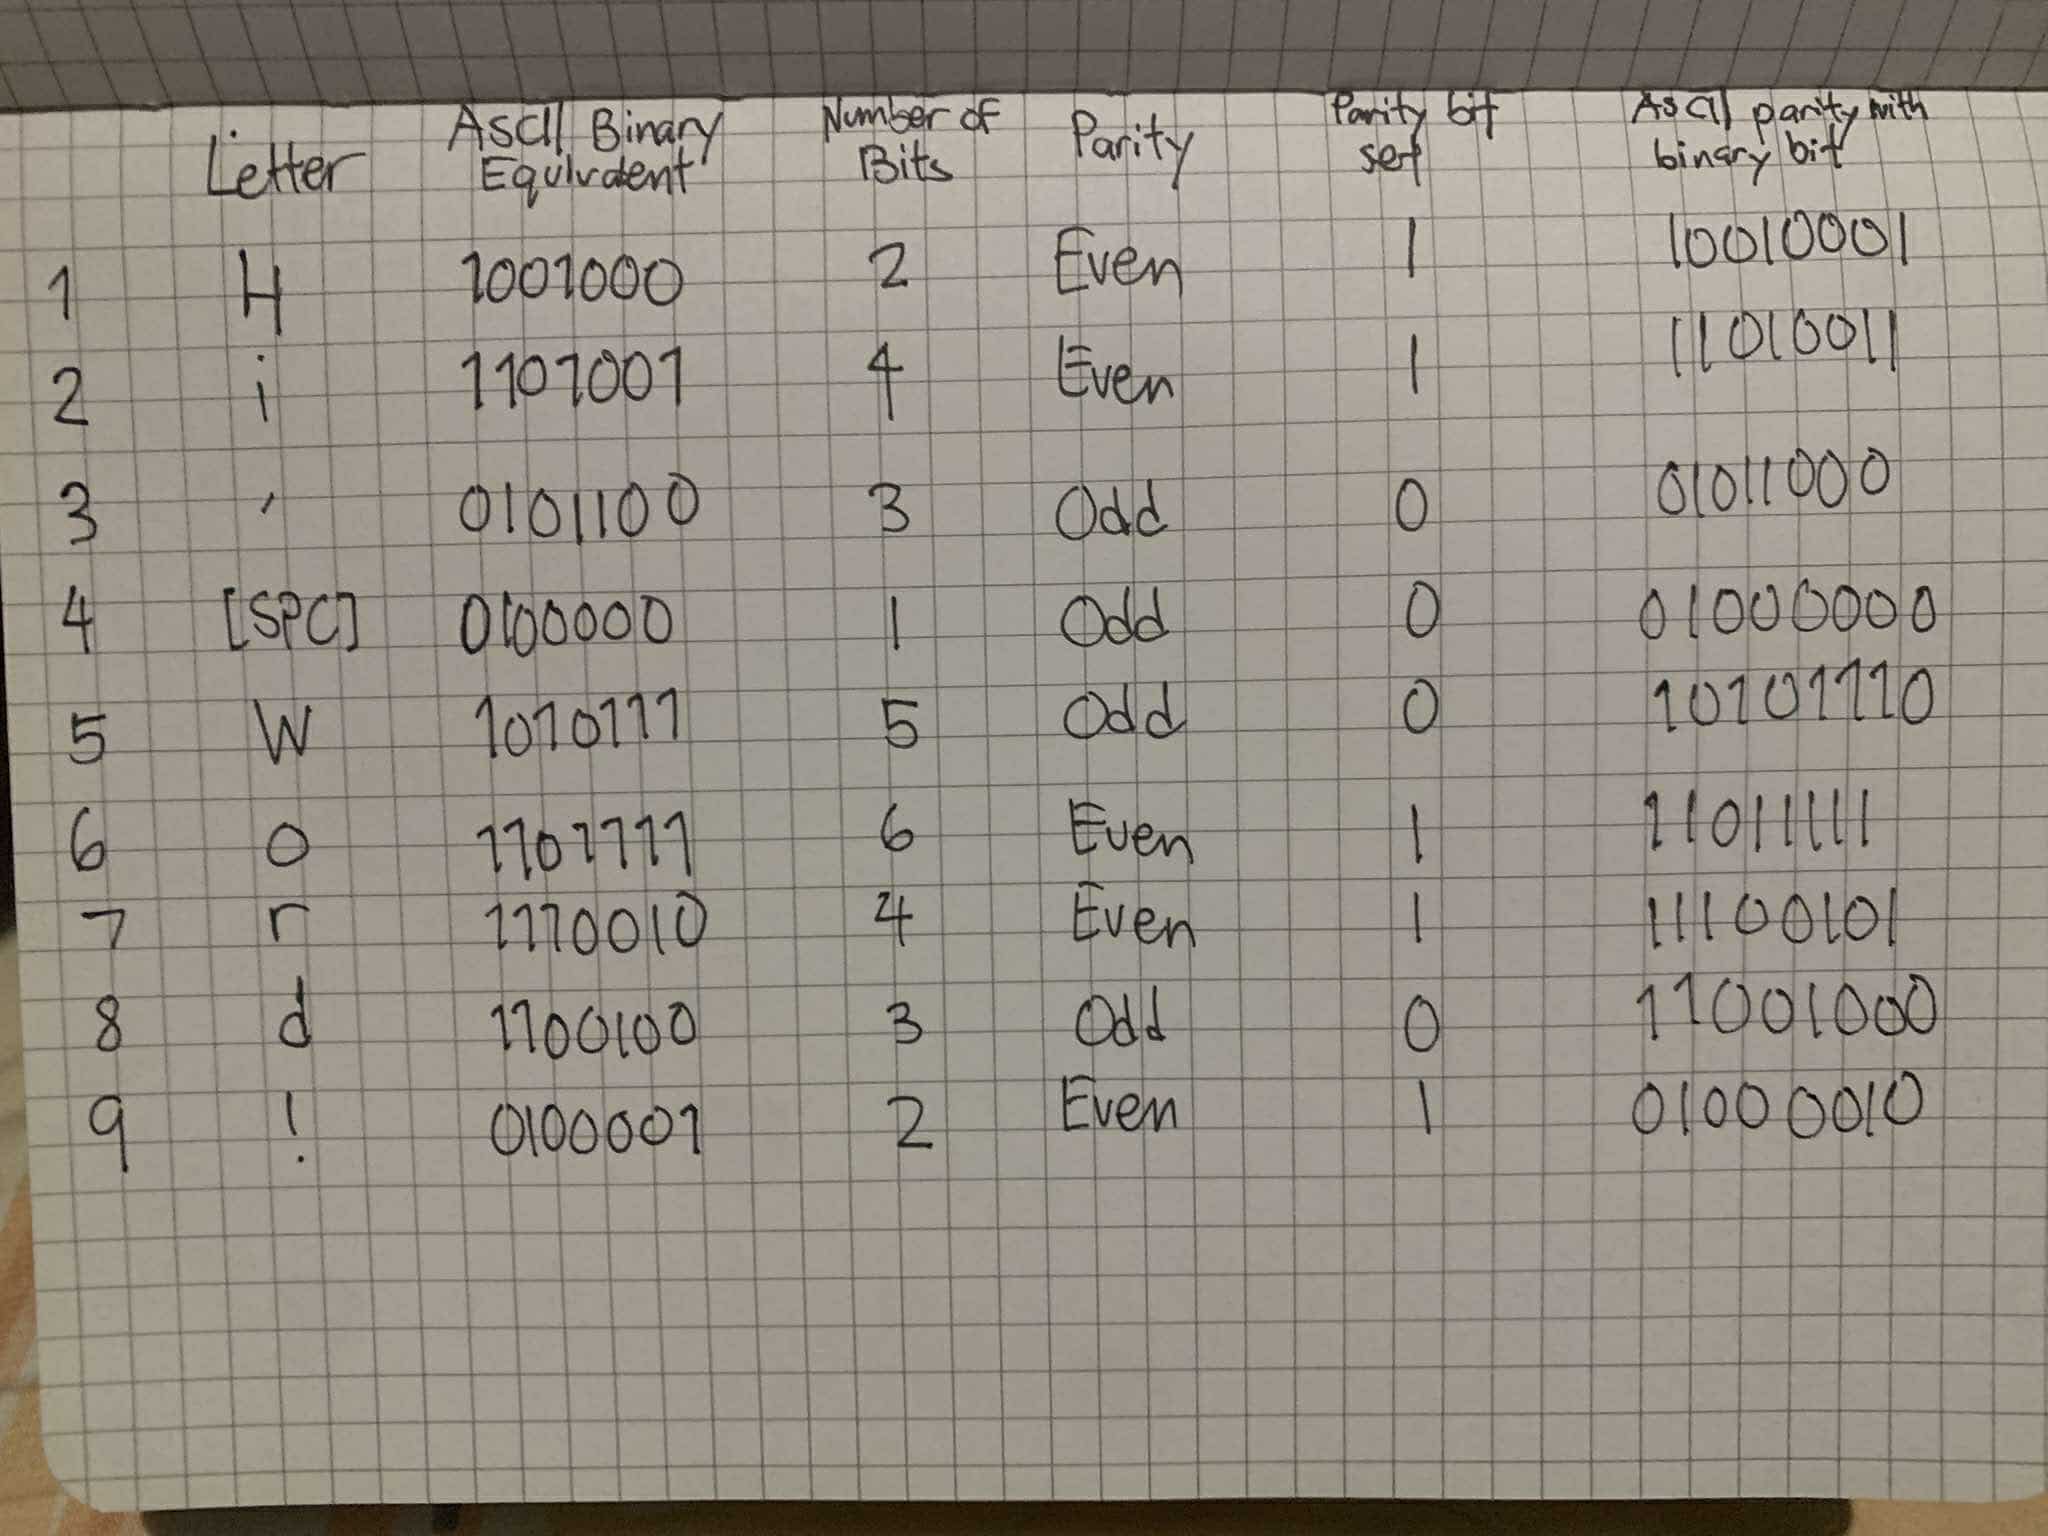 Letter Ascii Binary Equivalent Number of Bits Parity Parity bit set Ascii parity with binary bit
1 H 1001000 2 Even 1 10010001
2 i 1101001 4 Even 1 11010011
3 , 0101100 3 Odd 0 01011000
4 [SPC] 0100000 1 Odd 0 01000000
5 W 1010111 5 Odd 0 10101110
6 o 1101111 6 Even 1 11011111
7 r 1110010 4 Even 1 11100101
8 d 1100100 3 Odd 0 11001000
9 ! 0100001 2 Even 1 01000010